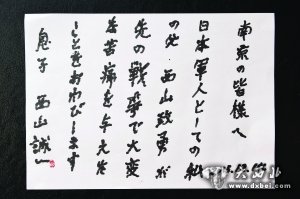 南京の皆様へ
日本軍人としての私
の父 西山政勇が
先の戦争で大変
な苦痛を与えた
ことをおわびします
息子 西山誠一
www.dxbei.com